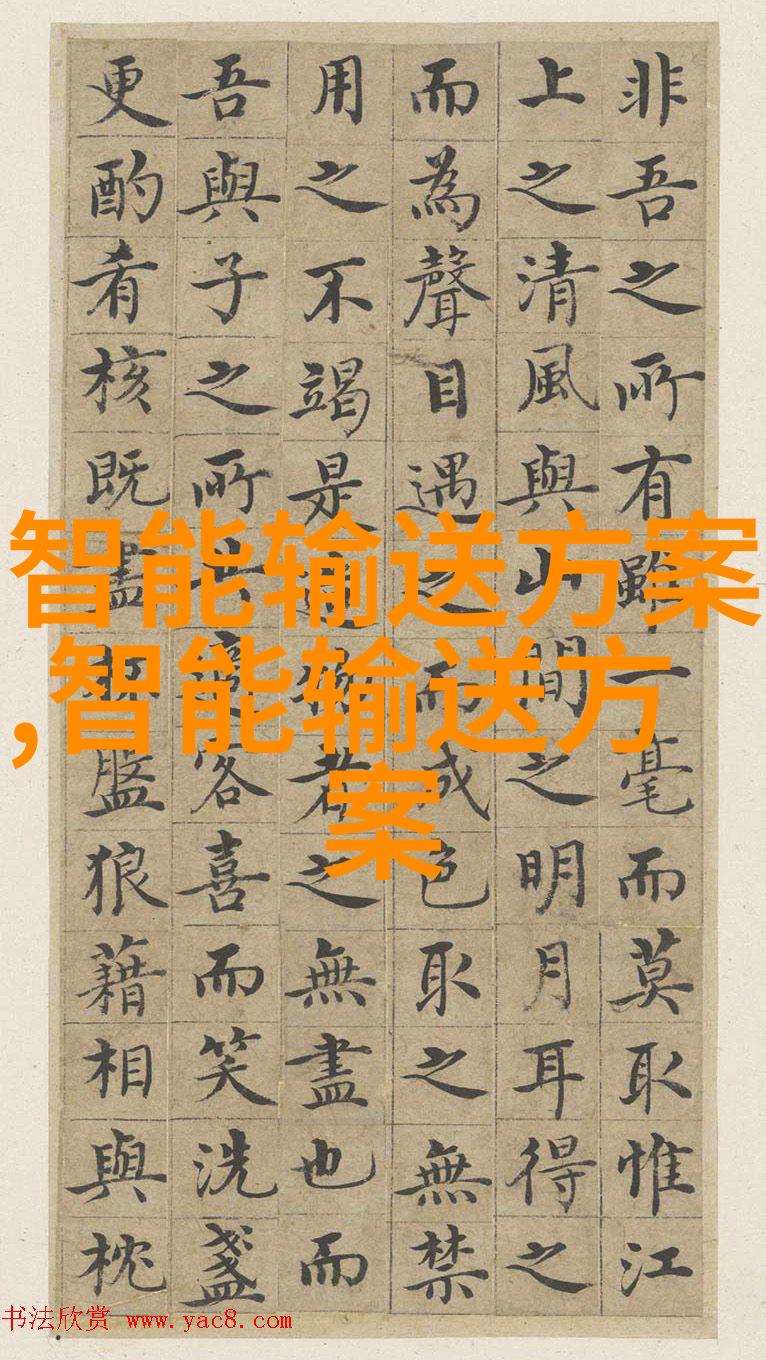 非吾之所有雖一毫而莫取惟江
上之清風與山間之明月耳得之
而為聲目遇之而成色取之無禁
用之不竭是者之無盡也而
吾與子之所共客喜而笑洗盞
更酌肴核既盡盤狼藉相與枕
智能输送方案
,智能输送方
案
书法欣赏 www.yac8.com